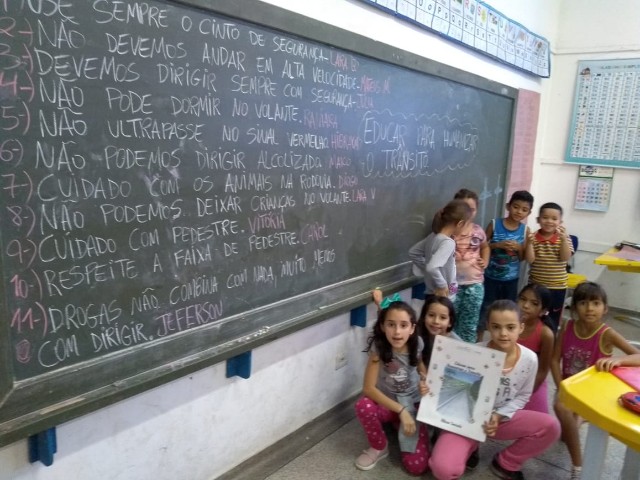 USE SEMPRE O CINTO DE SEGURANÇA-LARA G
2-) NÃO DEVEMOS ANDAR EM ALTA VELOCIDADE-
3-) DEVEMOS DIRIGIR SEMPRE COM SEGURANÇA-
4-) NÃO PODE DORMIR NO VOLANTE.
5-) NÃO ULTRAPASSE NO SINAL VERMELHO.
6-) NÃO PODEMOS DIRIGIR ALCOLIZADO.
7-) CUIDADO COM OS ANIMAIS NA RODOVIA.
8-) NÃO PODEMOS DEIXAR CRIANÇAS NO VOLANTE. LARA V
9-) CUIDADO COM PEDESTRE. VITÓRIA
10-) RESPEITE A FAIXA DE PEDESTRE. CAROL
11-) DROGAS NÃO COMBINA COM NADA, MUITO MENOS
COM DIRIGIR. JEFERSON
EDUCAR PARA HUMANIZAR
O TRÂNSITO